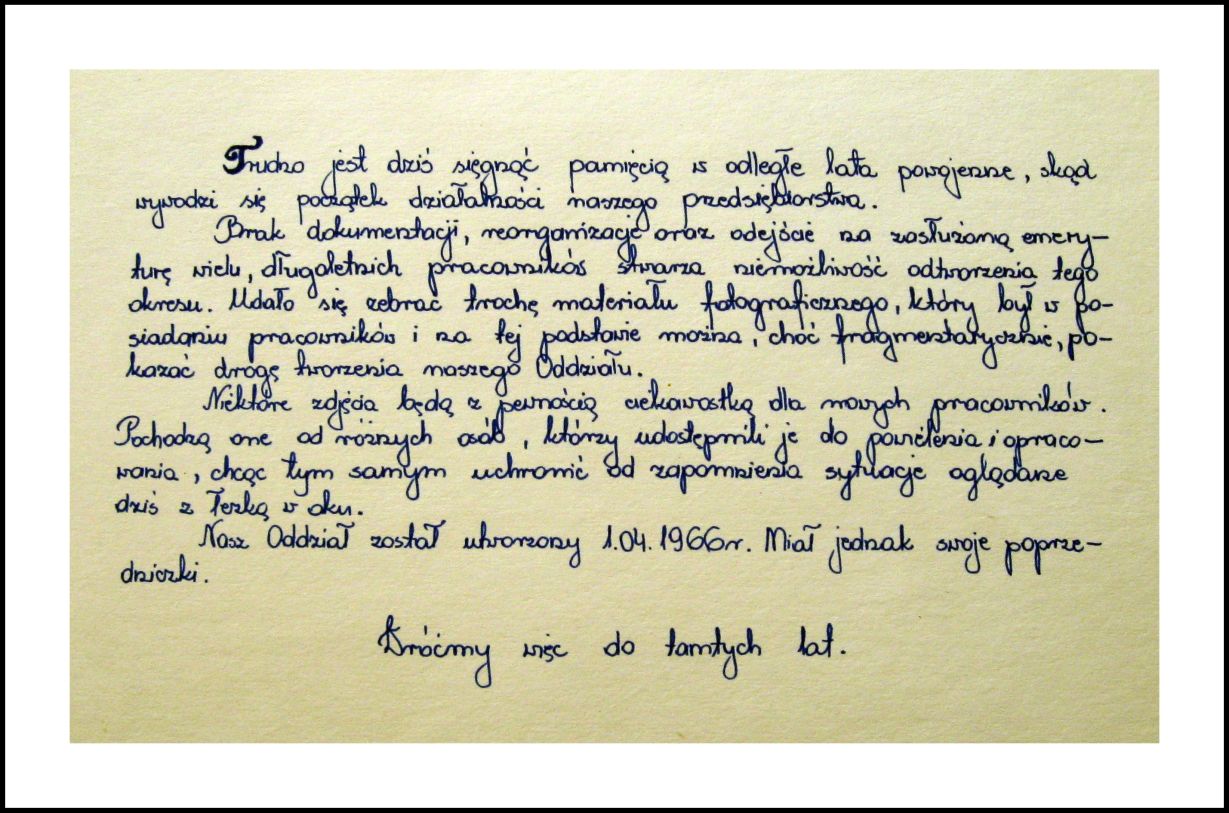 Trudno jest dziś sięgnąć pamięcią w odległe lata powojenne, skąd
wywodzi się początek działalności naszego przedsiębiorstwa.
Brak dokumentacji, reorganizacje oraz odejście na zasłużoną emery-
turę wielu, długoletnich pracowników stwarza niemożliwość odtworzenia tego
okresu. Udało się zebrać trochę materiału fotograficznego, który był w po-
siadaniu pracowników i na tej podstawie można, choć fragmentarycznie, po-
kazać drogę tworzenia naszego Oddziału.
Niektóre zdjęcia będą z pewnością ciekawostką dla nowych pracowników.
Pochodzą one od różnych osób, którzy udostępnili je do powielenia i opraco-
wania, chcąc tym samym uchronić od zapomnienia sytuacje oglądane
dziś z łezką w oku.
Nasz Oddział został utworzony 1.04.1966r. Miał jednak swoje poprze-
dniczki.
Wróćmy więc do tamtych lat.